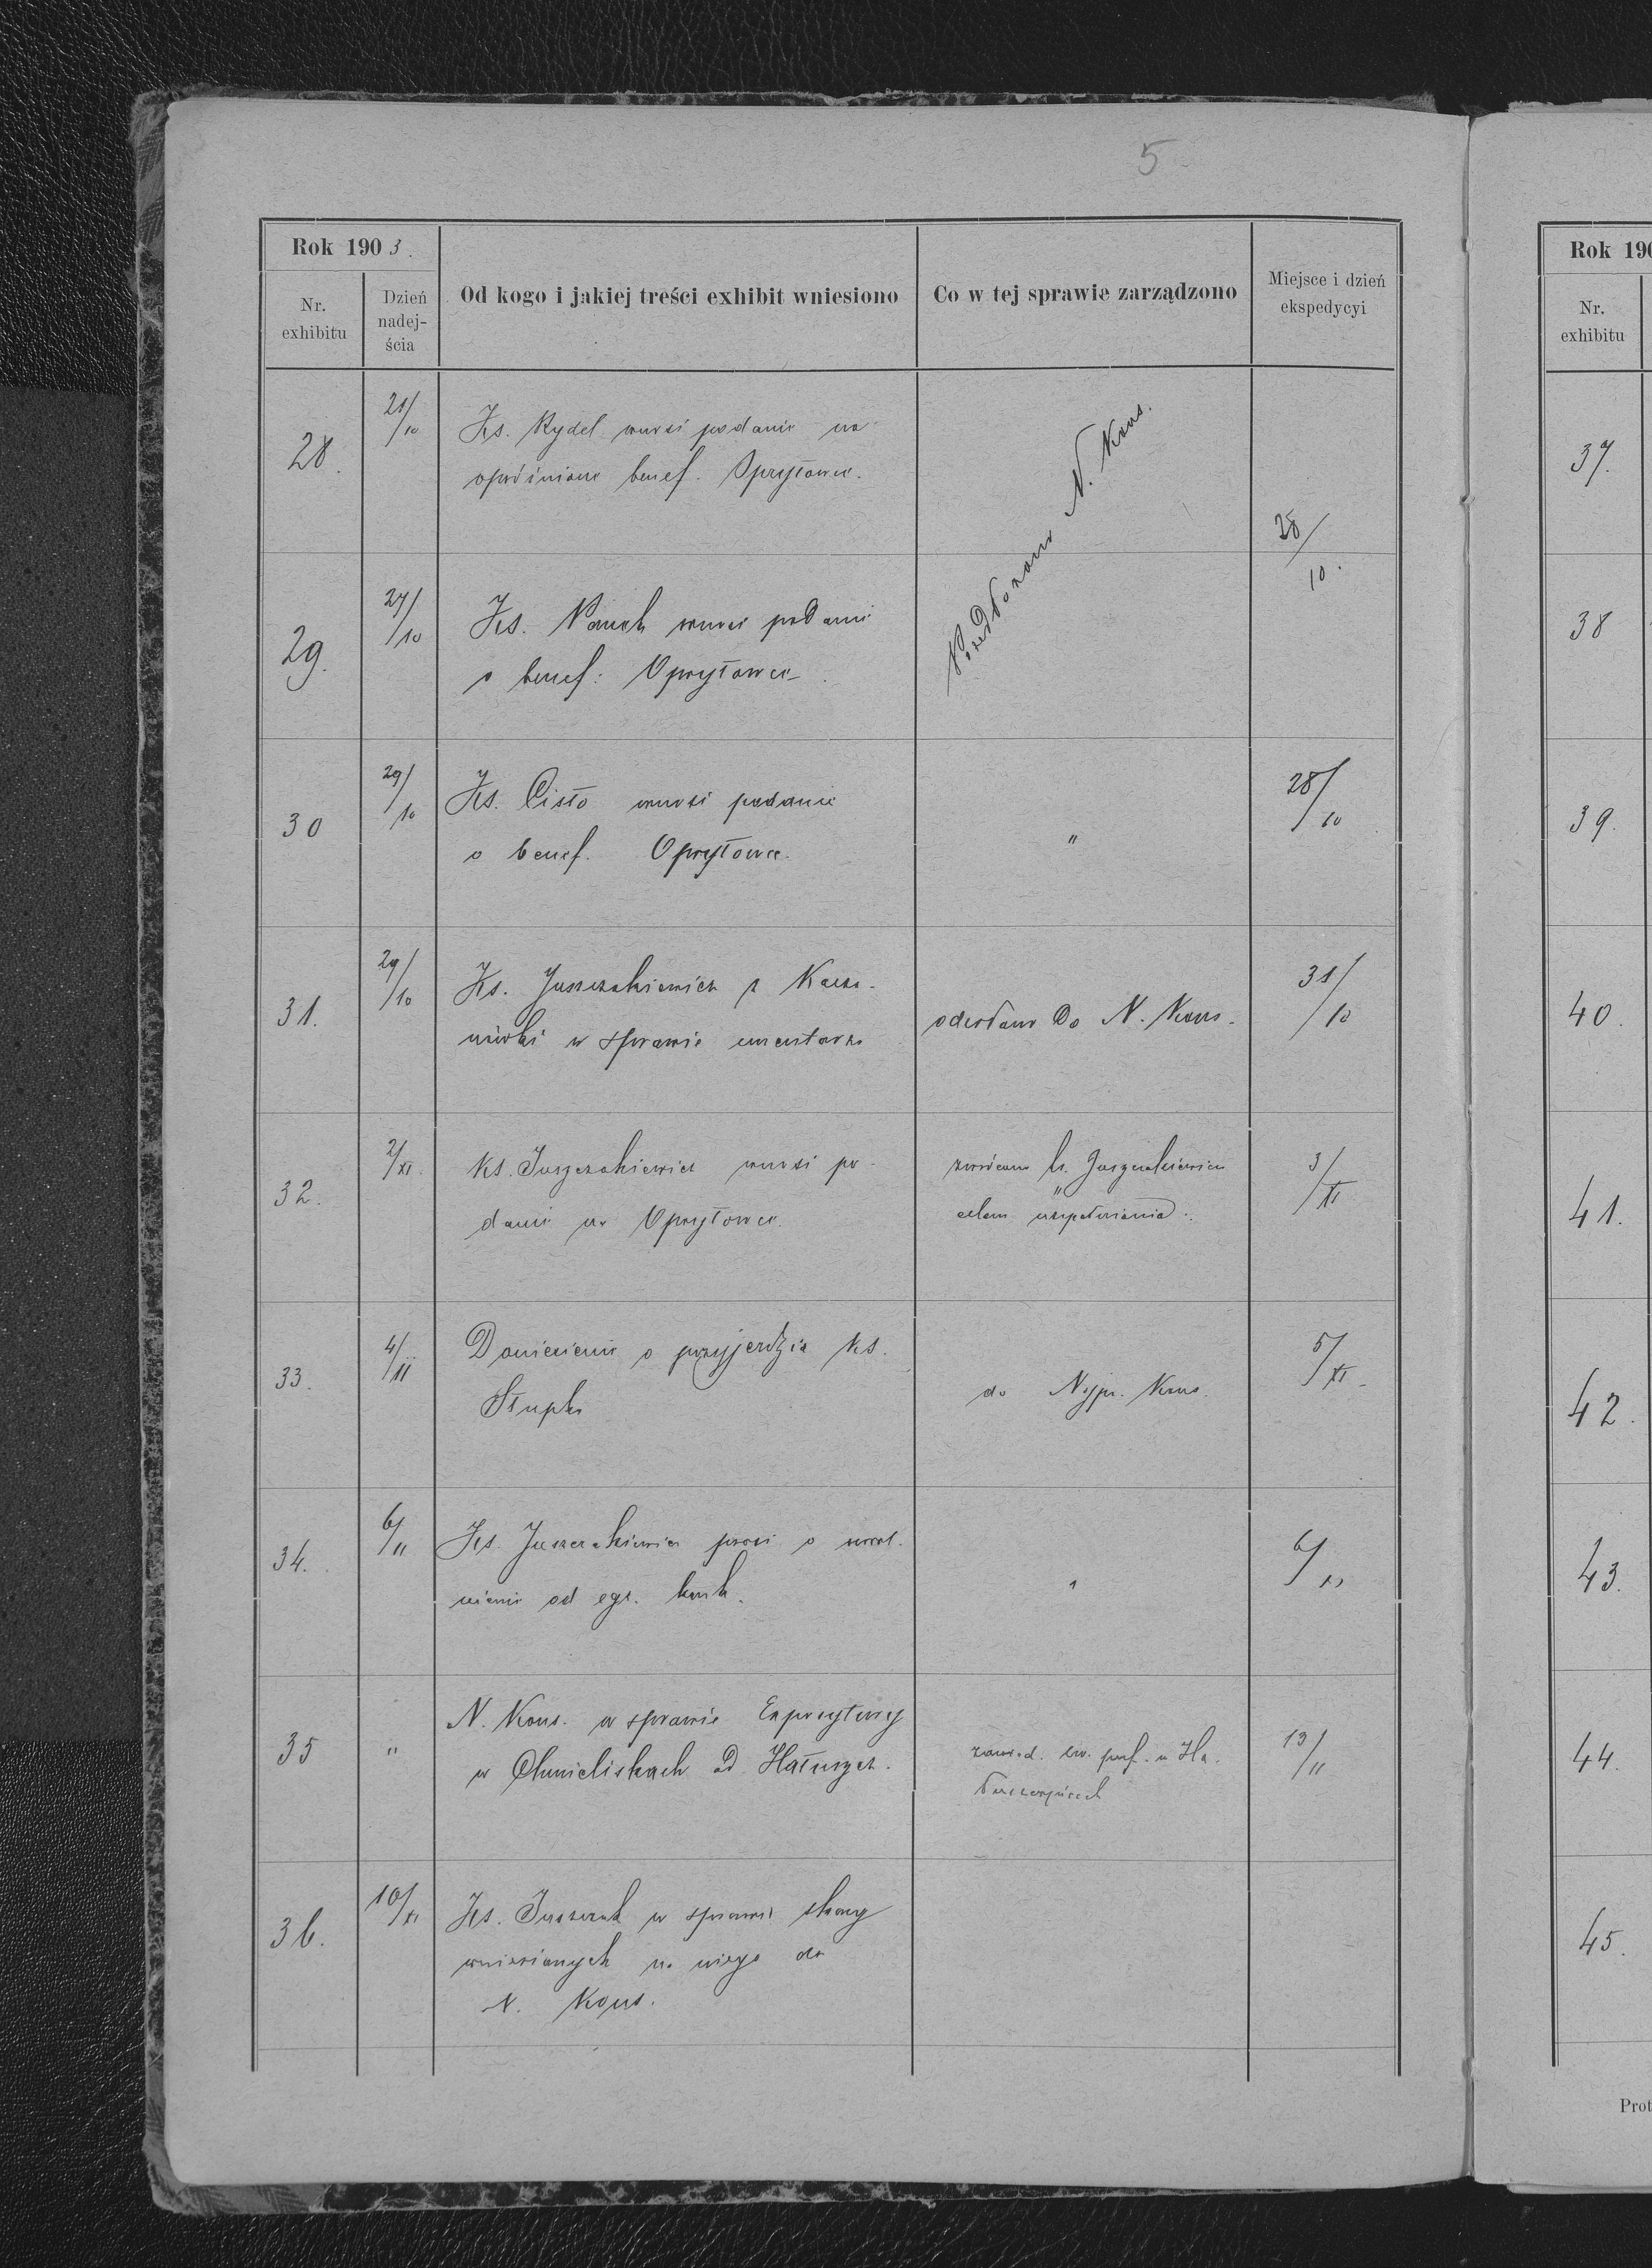 5
Rok 1903.
Nr. exhibitu
Dzień nadej-ścia
Od kogo i jakiej treści exhibit wniesiono
Co w tej sprawie zarządzono
Miejsce i dzień ekspedycyi
28.
21/10
Ks. Rydel wnosi podanie na
opróżnione benef. Opryłowce.
Przedłożono N. Kons.
28/10.
29.
27/10
Ks. wnosi podanie
o benef: Opryłowce
30
29/10
Ks. Cisło wnosi podanie
o benef. Opryłowce.
"
28/10
31.
29/10
Ks. Juszczakiewicz z Kacza-
nówki w sprawie cmentarza
odesłano do N. Kons.
31/10
32.
2/XI.
Ks. Juszczakiewicz wnosi po-
danie na Opryłowce.
zwrócono ks. Juszczakiewicz
celem uzupełnienia.
3/XI
33.
4/11
Doniesienie o przyjeździe ks.
Słupka
do Najprz. Kons.
5/XI
34.
6/11
Ks. Juszczakiewicz prosi o uwol-
nienie od egz. konk.
"
6/11
35
"
N. Kons. w sprawie Expozytury
w Chmieliskach ad Hałuszcz.
zawiad. Ha-
łuszczyńcach
13/11
36.
10/XI
Ks. Juszczak w sprawie skarg
wniesionych na niego do
N. Kons.
Rok 190
Nr.
exhibitu
37.
38
39.
40.
41.
42.
43.
44.
45.
Prot